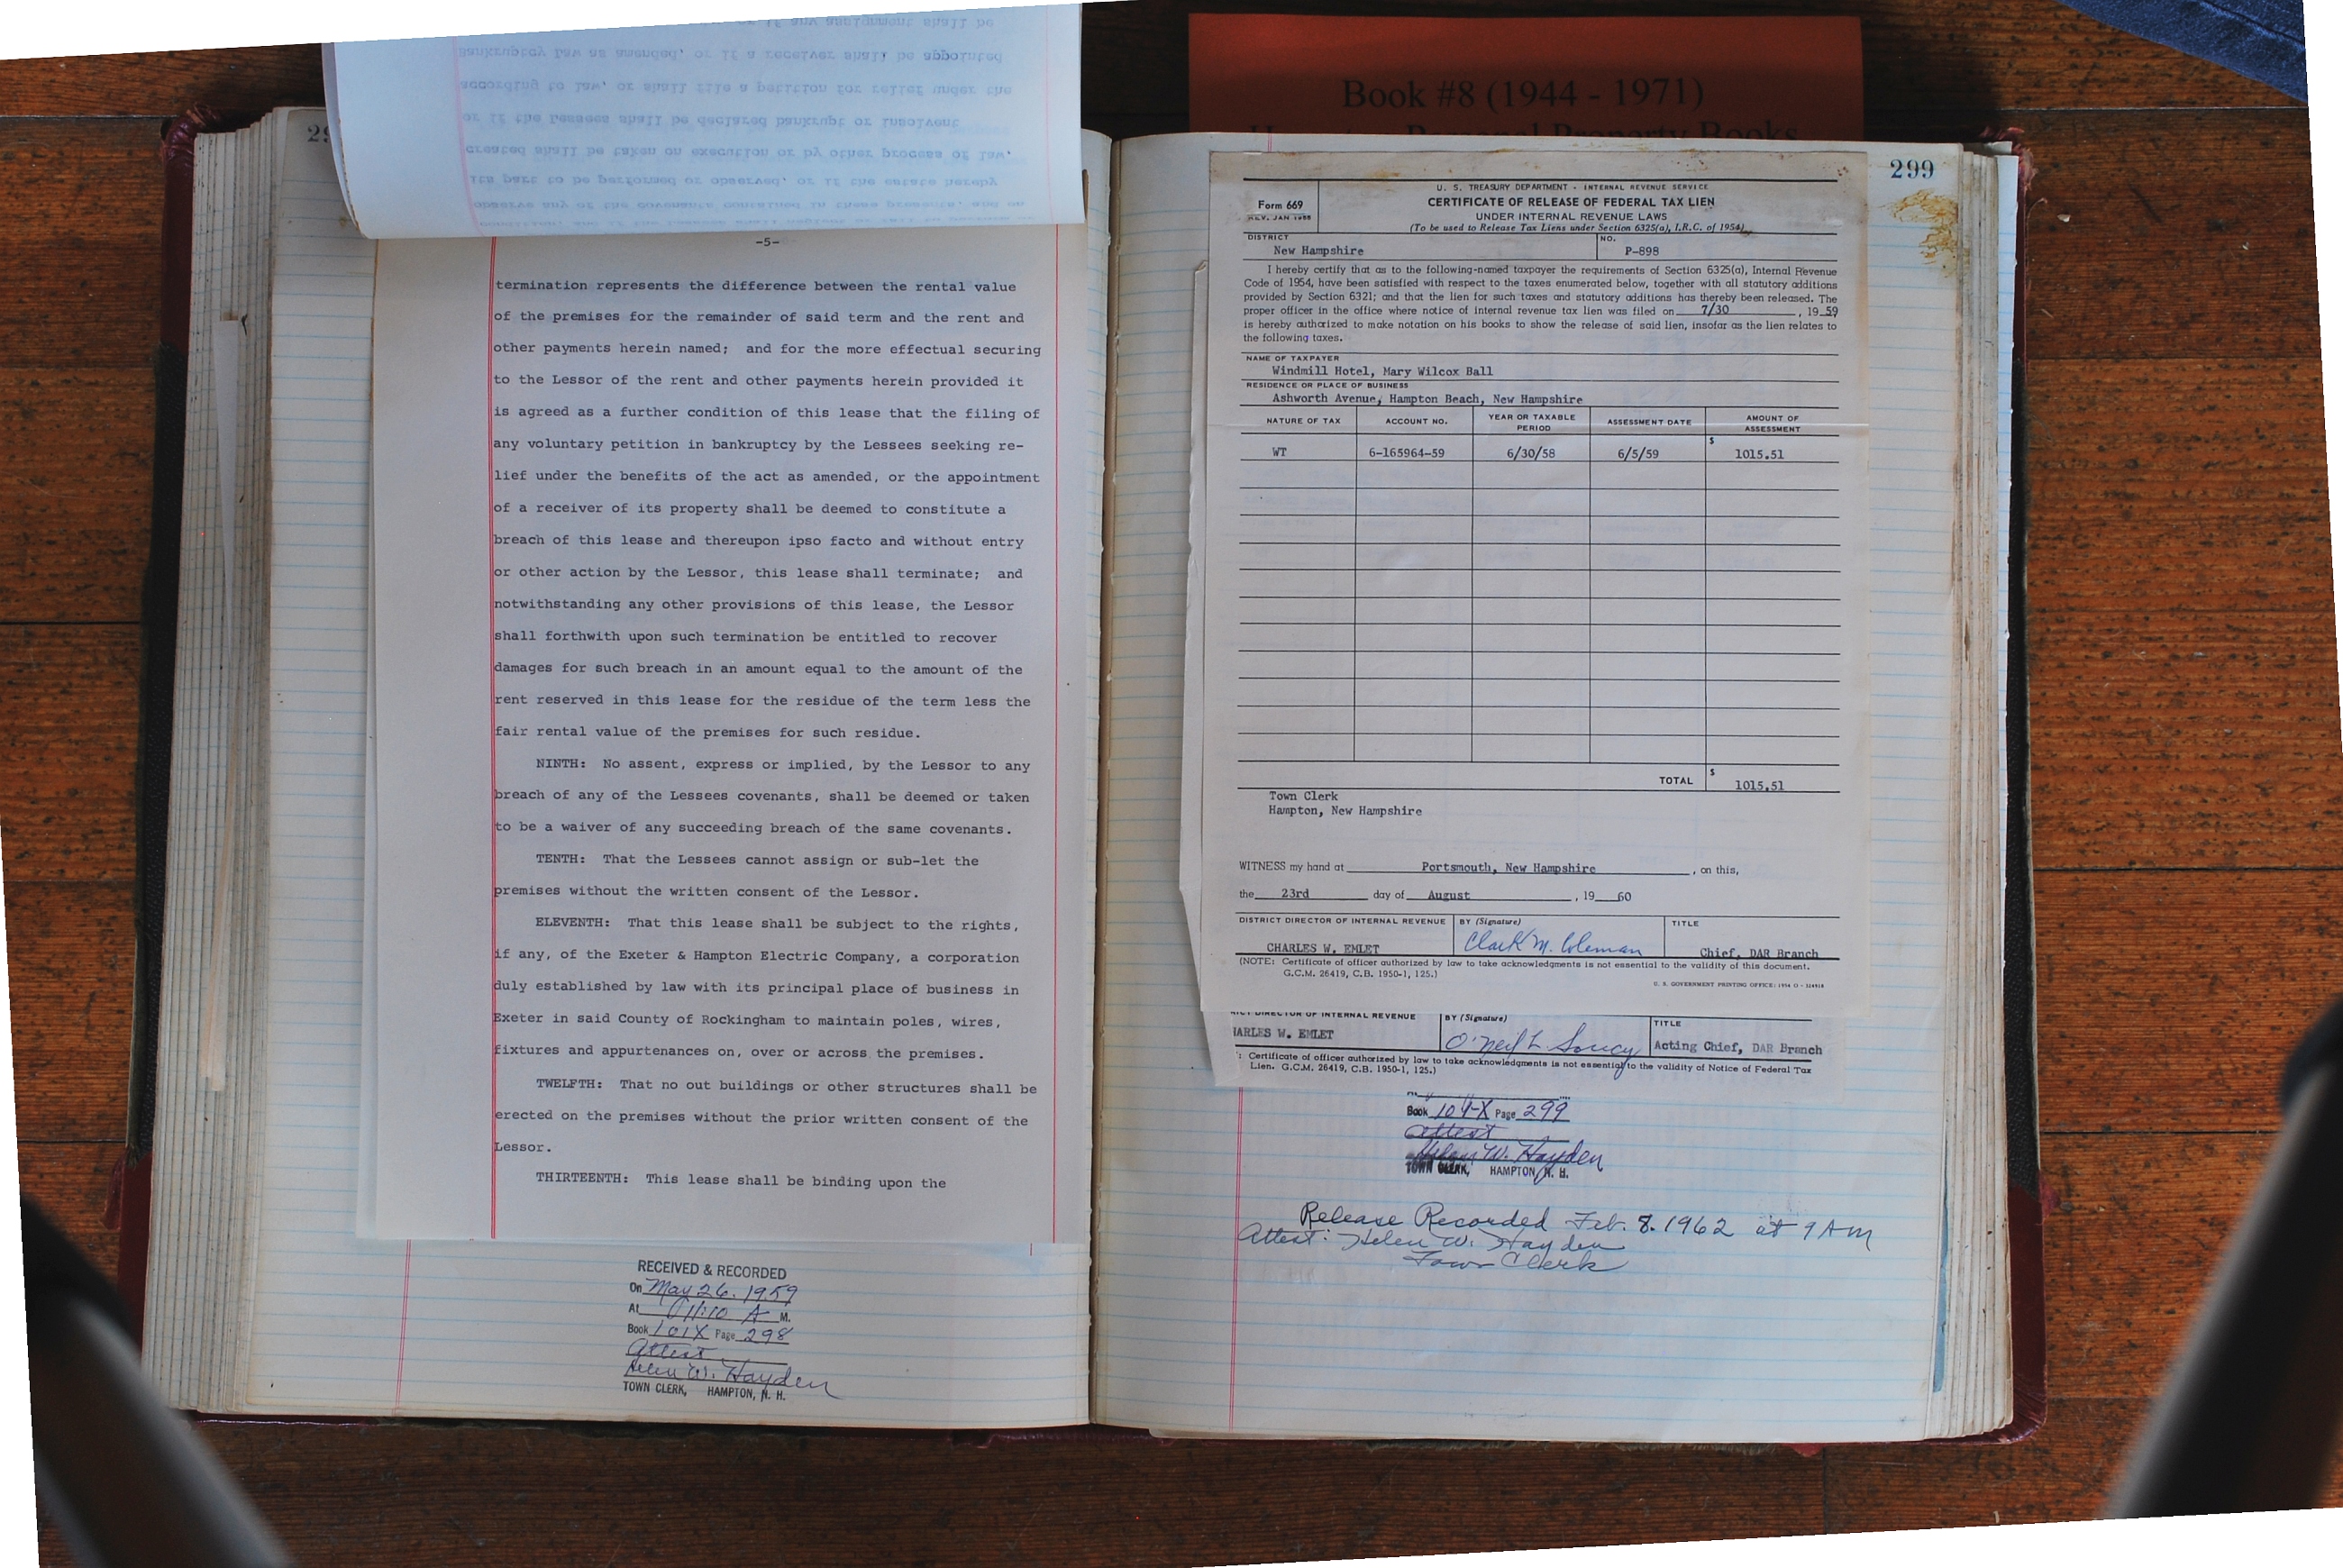 Book #8 (1944 - 1971)
Personal Property Books
-5-
termination represents the difference between the rental value
of the premises for the remainder of said term and the rent and
other payments herein named; and for the more effectual securing
to the Lessor of the rent and other payments herein provided it
is agreed as a further condition of this lease that the filing of
any voluntary petition in bankruptcy by the Lessees seeking re-
lief under the benefits of the act as amended, or the appointment
of a receiver of its property shall be deemed to constitute a
breach of this lease and thereupon ipso facto and without entry
or other action by the Lessor, this lease shall terminate; and
notwithstanding any other provisions of this lease, the Lessor
shall forthwith upon such termination be entitled to recover
damages for such breach in an amount equal to the amount of the
rent reserved in this lease for the residue of the term less the
fair rental value of the premises for such residue.
NINTH: No assent, express or implied, by the Lessor to any
breach of any of the Lessees covenants, shall be deemed or taken
to be a waiver of any succeeding breach of the same covenants.
TENTH: That the Lessees cannot assign or sub-let the
premises without the written consent of the Lessor.
ELEVENTH: That this lease shall be subject to the rights,
if any, of the Exeter & Hampton Electric Company, a corporation
duly established by law with its principal place of business in
Exeter in said County of Rockingham to maintain poles, wires,
fixtures and appurtenances on, over or across the premises.
TWELFTH: That no out buildings or other structures shall be
erected on the premises without the prior written consent of the
Lessor.
THIRTEENTH: This lease shall be binding upon the
RECEIVED & RECORDED
On May 26, 1959
At 11:10 A M.
Book 101X Page 298
Attest
Helen W. Hayden
TOWN CLERK, HAMPTON, N. H.
299
Form 669
REV. JAN 1955
U. S. TREASURY DEPARTMENT - INTERNAL REVENUE SERVICE
CERTIFICATE OF RELEASE OF FEDERAL TAX LIEN
UNDER INTERNAL REVENUE LAWS
(To be used to Release Tax Liens under Section 6325(a), I.R.C. of 1954)
DISTRICT
New Hampshire
NO.
P-898
I hereby certify that as to the following-named taxpayer the requirements of Section 6325(a), Internal Revenue
Code of 1954, have been satisfied with respect to the taxes enumerated below, together with all statutory additions
provided by Section 6321; and that the lien for such taxes and statutory additions has thereby been released. The
proper officer in the office where notice of internal revenue tax lien was filed on 7/30, 19 59
is hereby authorized to make notation on his books to show the release of said lien, insofar as the lien relates to
the following taxes.
NAME OF TAXPAYER
Windmill Hotel, Mary Wilcox Ball
RESIDENCE OR PLACE OF BUSINESS
Ashworth Avenue, Hampton Beach, New Hampshire
NATURE OF TAX ACCOUNT NO. YEAR OR TAXABLE PERIOD ASSESSMENT DATE AMOUNT OF ASSESSMENT
WT 6-165964-59 6/30/58 6/5/59 $ 1015.51
TOTAL $ 1015.51
Town Clerk
Hampton, New Hampshire
WITNESS my hand at Portsmouth, New Hampshire, on this,
the 23rd day of August, 19 60
DISTRICT DIRECTOR OF INTERNAL REVENUE BY (Signature) TITLE
CHARLES W. EMLET Clark M. Coleman Chief, DAR Branch
(NOTE: Certificate of officer authorized by law to take acknowledgments is not essential to the validity of this document.
G.C.M. 26419, C.B. 1950-1, 125.)
U. S. GOVERNMENT PRINTING OFFICE: 1954 O
DIRECTOR OF INTERNAL REVENUE BY (Signature) TITLE
ARLES W. EMLET O'Neil L Soucy Acting Chief, DAR Branch
: Certificate of officer authorized by law to take acknowledgments is not essential to the validity of Notice of Federal Tax
Lien. G.C.M. 26419, C.B. 1950-1, 125.)
Book 104-X Page 299
Attest
Helen W. Hayden
TOWN CLERK, HAMPTON, N. H.
Release Recorded Feb. 8. 1962 at 9 AM
Attest: Helen W. Hayden
Town Clerk